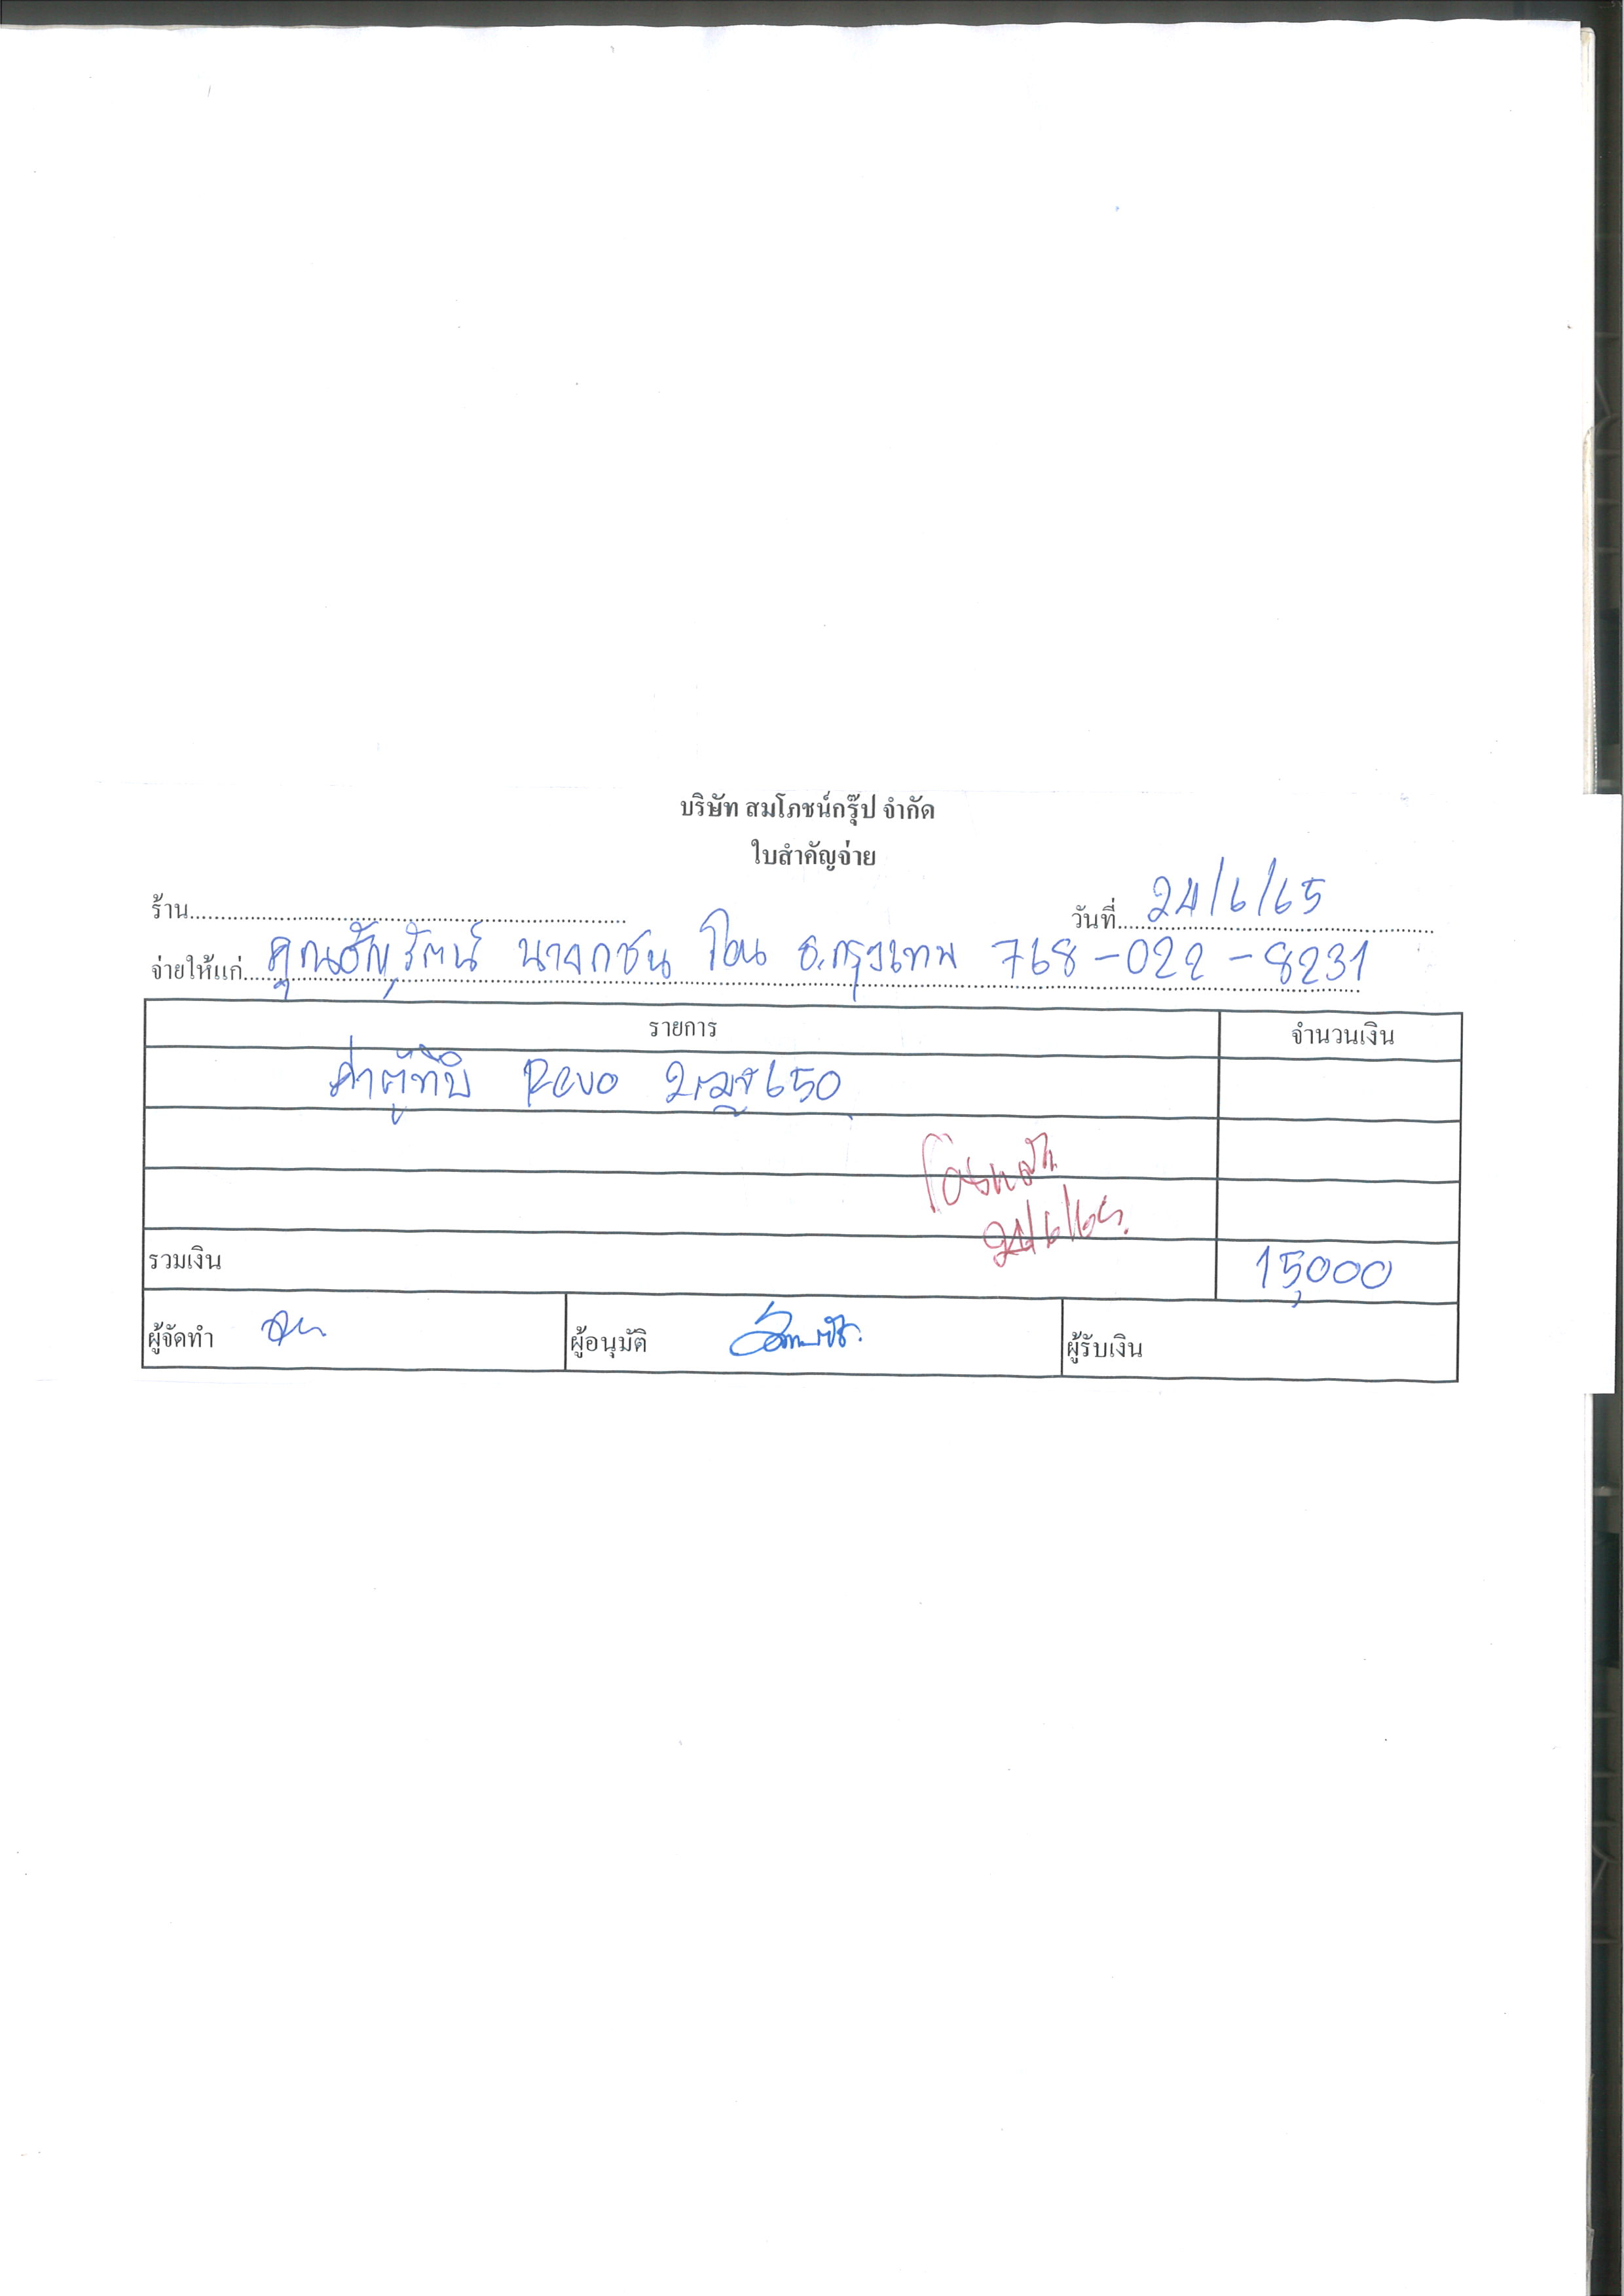 บริษัท สมโภชน์กรุ๊ป จำกัด
ใบสำคัญจ่าย
ร้าน
วันที่ 24/6/65
จ่ายให้แก่ คุณธัญรัตน์ นาจกชน โอน ธ.กรุงเทพ 768-022-8231
รายการ จำนวนเงิน
ค่าตู้ทึบ Revo 2ฒฐ650
โอนแล้ว
24/6/65
รวมเงิน 15,000
ผู้จัดทำ ผู้อนุมัติ ผู้รับเงิน